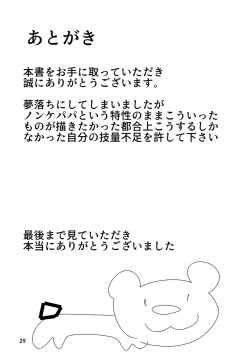 あとがき
本書をお手に取っていただき
誠にありがとうございます。
夢落ちにしてしまいましたが
ノンケパパという特性のままこういった
ものが描きたかった都合上こうするしか
なかった自分の技量不足を許して下さい
最後まで見ていただき
本当にありがとうございました
29